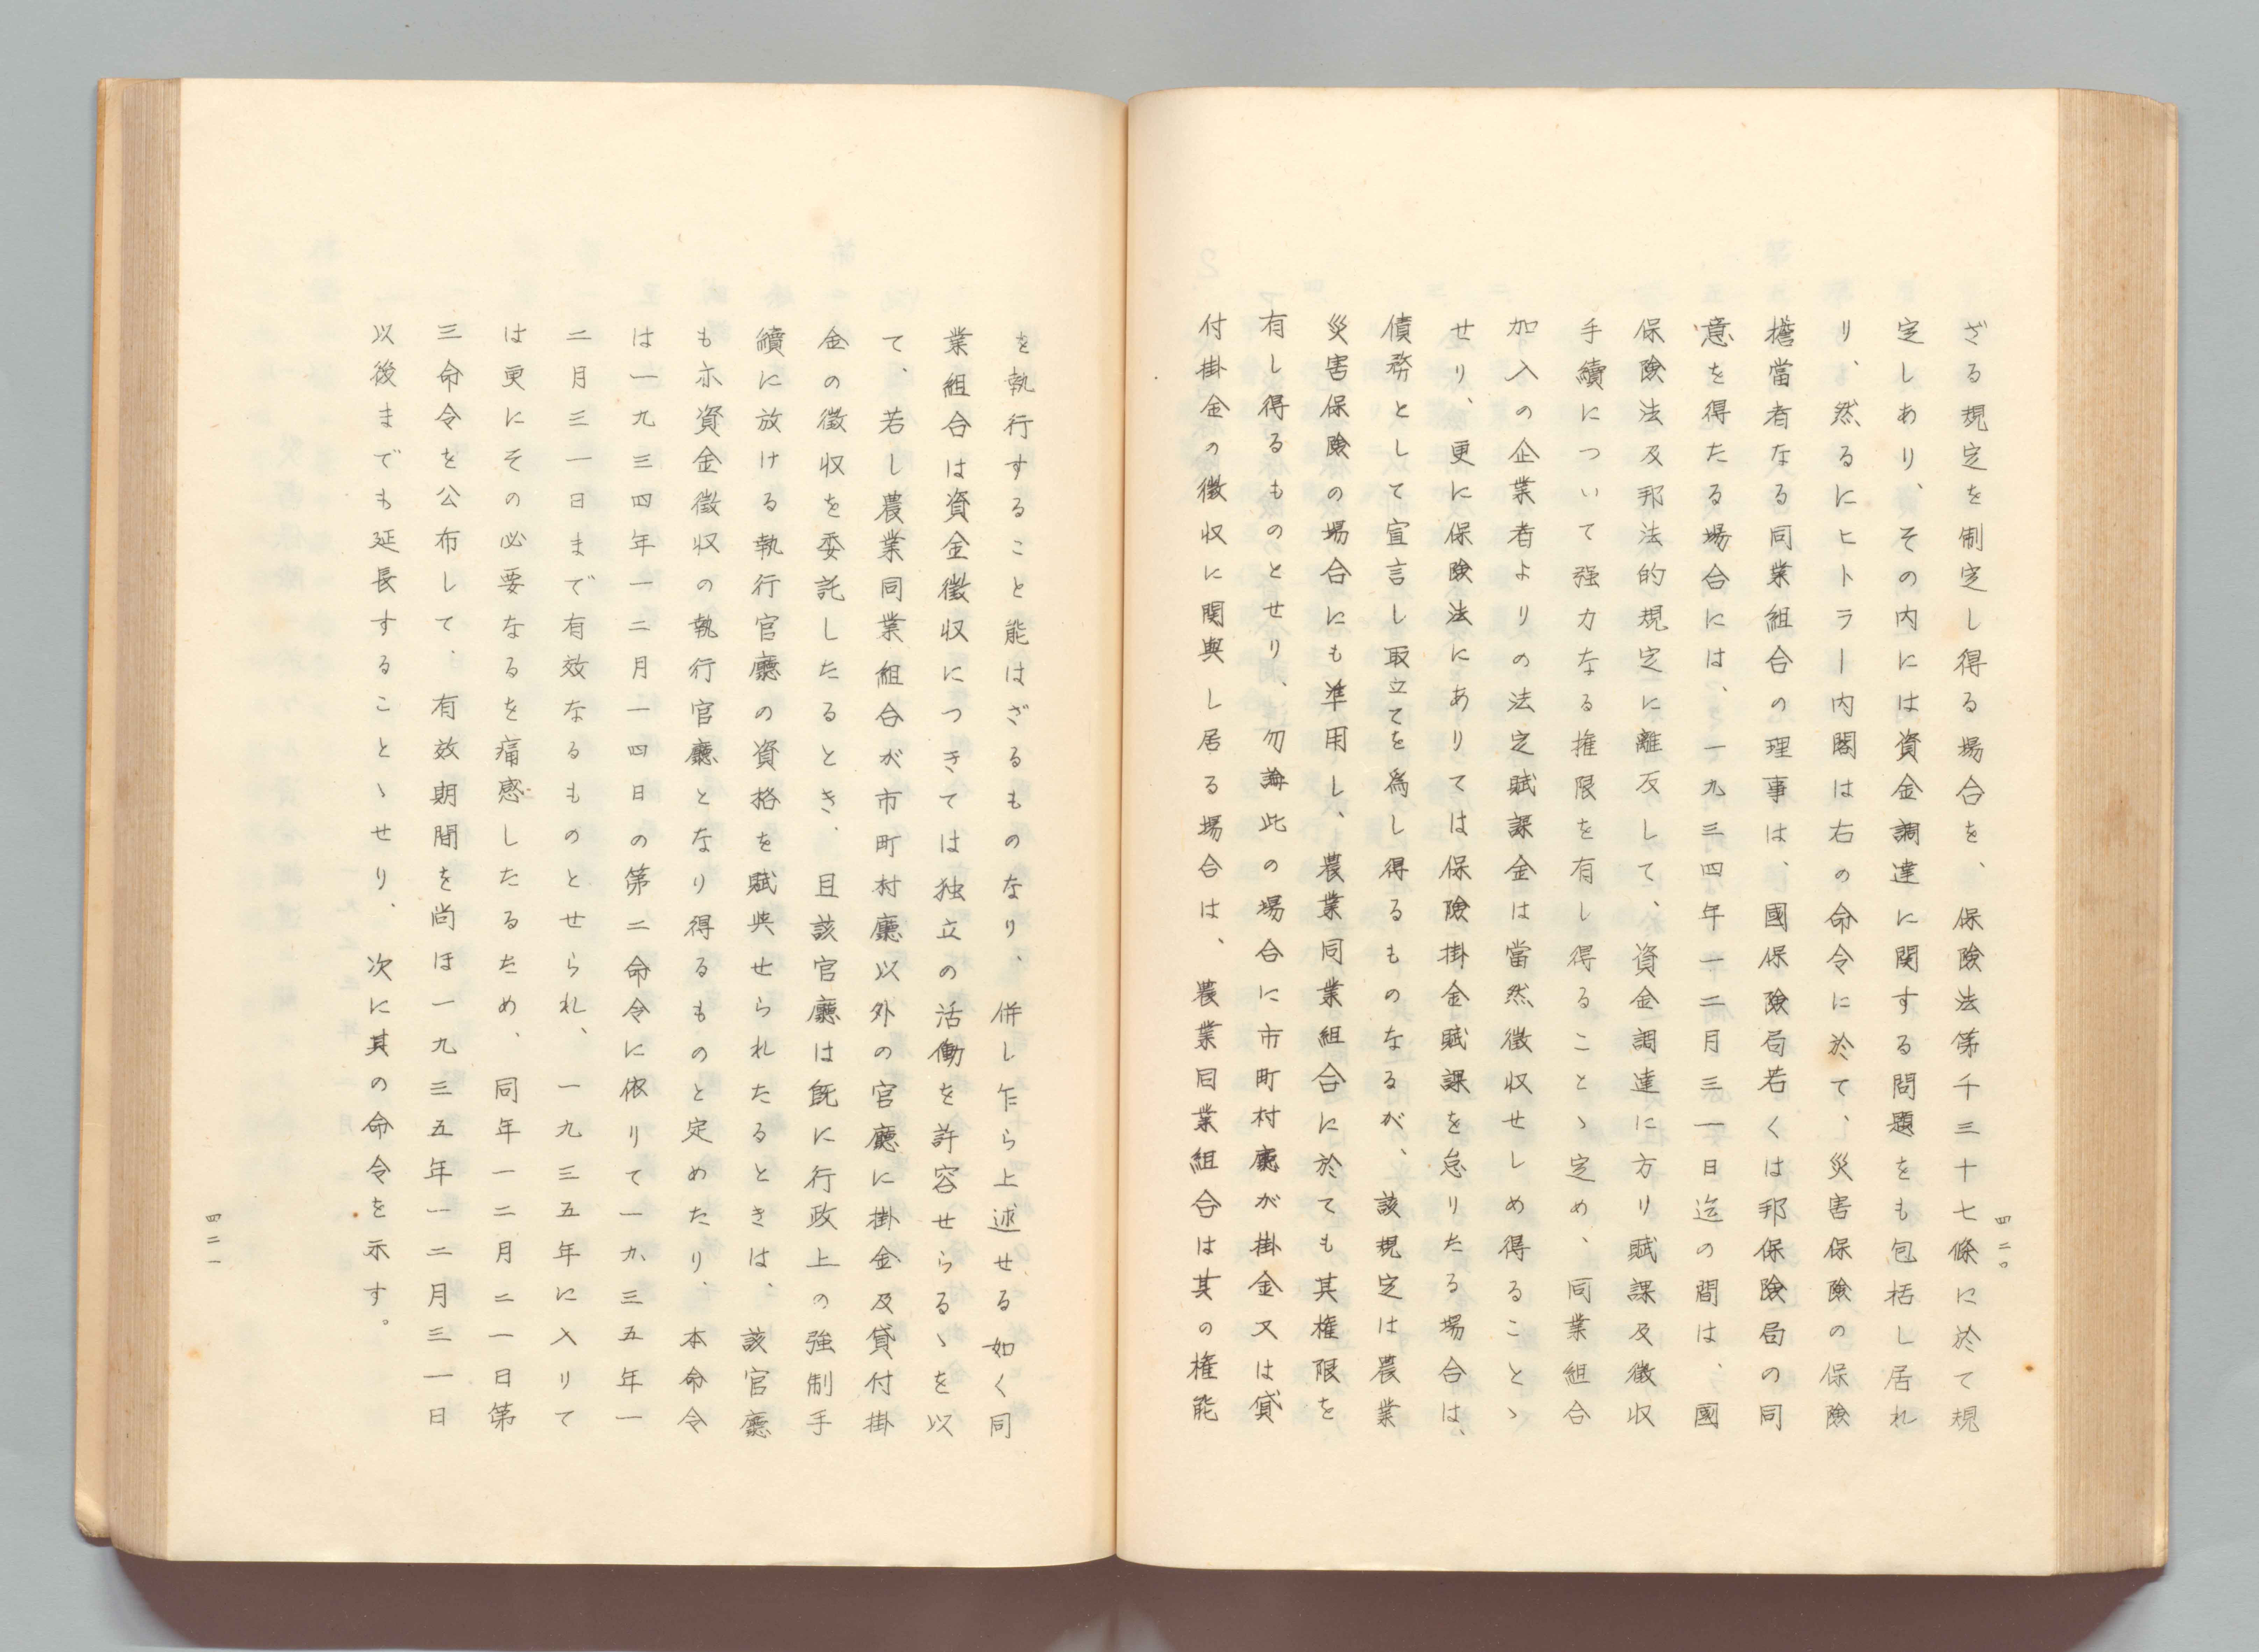 四二〇
ざる規定を制定し得る場合を、保険法第千三十七條に於て規
定しあり、その内には資金調達に関する問題をも包括し居れ
り、然るにヒトラー内閣は右の命令に於て、災害保険の保険
擔當者なる同業組合の理事は、國保険局若くは邦保険局の同
意を得たる場合には、一九三四年一二月三一日迄の間は、國
保険法及邦法的規定に離反して、資金調達に方り賦課及徴収
手續について強力なる権限を有し得ることゝ定め、同業組合
加入の企業者よりの法定賦課金は當然徴収せしめ得ることゝ
せり、更に保険法にありては保険掛金賦課を怠りたる場合は、
債務として宣言し取立てを為し得るものなるが、該規定は農業
災害保険の場合にも準用し、農業同業組合に於ても其権限を
有し得るものとせり、勿論此の場合に市町村廳が掛金又は貸
付掛金の徴収に関與し居る場合は、農業同業組合は其の権能
を執行すること能はざるものなり、併し乍ら上述せる如く同
業組合は資金徴収につきては独立の活働を許容せらるゝを以
て、若し農業同業組合が市町村廳以外の官廳に掛金及貸付掛
金の徴収を委託したるとき、且該官廳は既に行政上の強制手
續に放ける執行官廳の資格を賦與せられたるときは、該官廳
も亦資金徴収の執行官廳となり得るものと定めたり、本命令
は一九三四年一二月一四日の第二命令に依りて一九三五年一
二月三一日まで有效なるものとせられ、一九三五年に入りて
は更にその必要なるを痛感したるため、同年一二月二一日第
三命令を公布して、有效期間を尚ほ一九三五年一二月三一日
以後までも延長することゝせり、次に其の命令を示す。
四二一